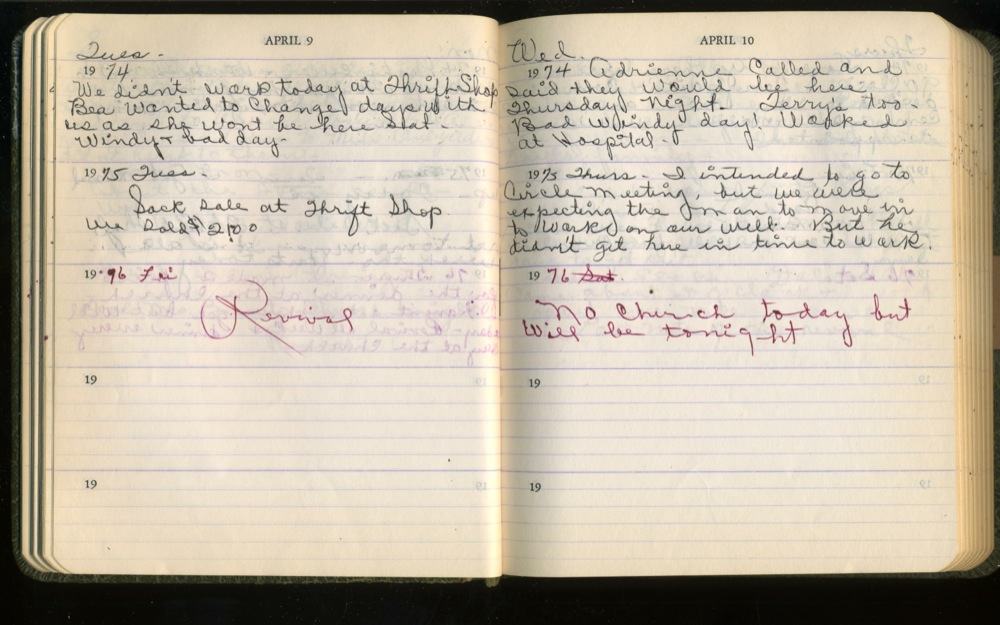 APRIL 9
Tues.
19 74
We didn't work today at Thrift Shop
Bea wanted to Change days with
us as she wont be here Sat.
Windy + bad day.
1975 Tues.
Sack Sale at Thrift Shop.
We Sold $2100
19 76 Fri
Revival
19
19
APRIL 10
Wed.
19 74 Adrienne Called and
said they would be here
Thursday night. Terry's too.
Bad Windy day! Worked
at Hospital.
1975 Thurs. I intended to go to
Circle meeting, but we were
expecting the man to move in
to work on our well. But he
didn't get here in time to work.
19 76 Sat.
No Church today but
will be tonight
19
19